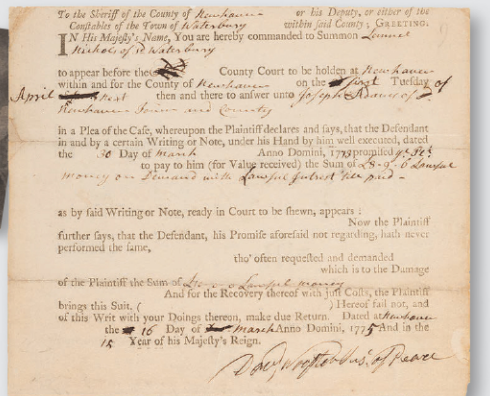 To the Sheriff of the County of Newhaven or his Deputy, or either of the
Constables of the Town of Waterbury within said County; GREETING.
IN His Majesty's Name, You are hereby commanded to Summon Lemuel
Nichols of sd Waterbury
to appear before the County Court to be holden at Newhaven
within and for the County of Newhaven on the first Tuesday of
April Next then and there to answer unto Joseph Adams of
Newhaven Town and County
in a Plea of the Case, whereupon the Plaintiff declares and says, that the Defendant
in and by a certain Writing or Note, under his Hand by him well executed, dated
the 30 Day of March Anno Domini, 1773 promised
to pay to him (for Value received) the Sum of Lawful
money on Demand with Lawful Intrest till paid
as by said Writing or Note, ready in Court to be shewn, appears:
Now the Plaintiff
further says, that the Defendant, his Promise aforesaid not regarding, hath never
performed the same,
tho' often requested and demanded
which is to the Damage
of the Plaintiff the Sum of Lawful money
And for the Recovery thereof with just Costs, the Plaintiff
brings this Suit, ( ) Hereof fail not, and
of this Writ with your Doings thereon, make due Return. Dated at Newhaven
the 16 Day of March Anno Domini, 1775 And in the
15 Year of his Majesty's Reign.
Davd Wooster Jus. of Peace